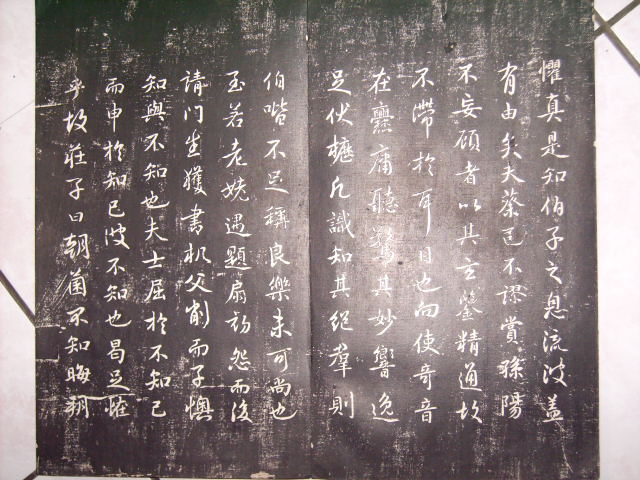 懼真是知伯子之息流波蓋
有由矣夫蔡邕不謬賞孫陽
不妄顧者以其玄鑒精通故
不滯於耳目也向使奇音
在爨庸聽驚其妙響逸
足伏櫪凡識知其絕羣則
伯喈不足稱良樂未可尚也
至若老姥遇題扇初怨而後
請门生獲書机父削而子懊
知與不知也夫士屈於不知己
而申於知己彼不知也曷足怪
乎故莊子曰朝菌不知晦朔